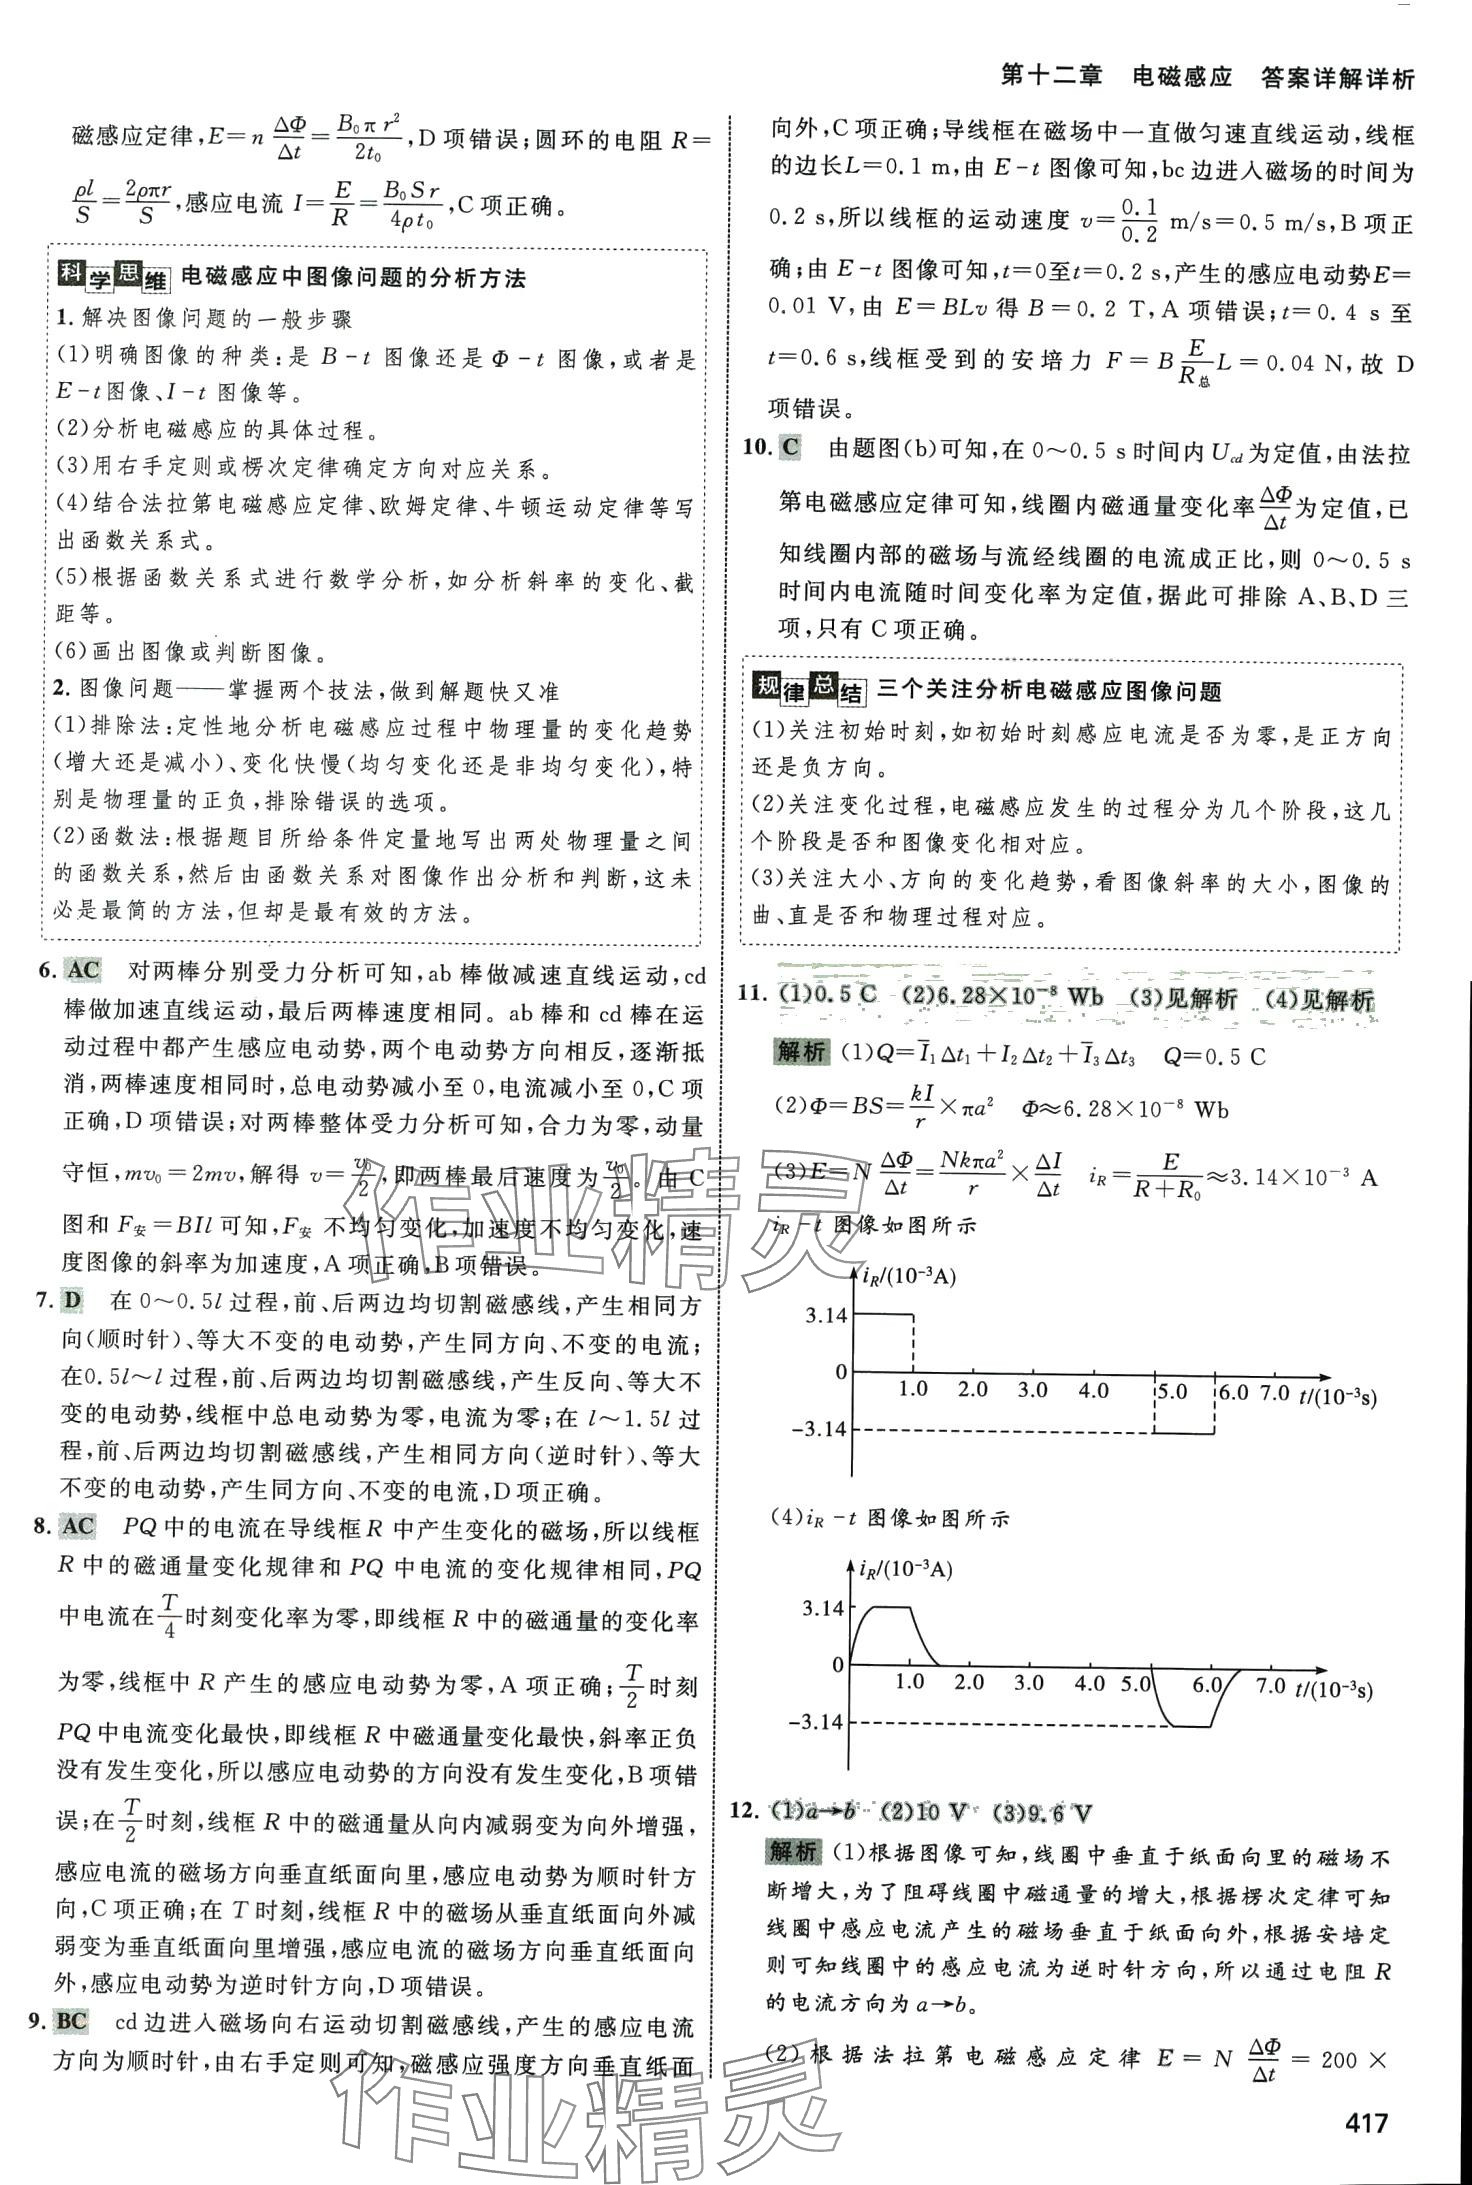 第十二章　电磁感应　答案详解详析
磁感应定律,E=n ΔΦ/Δt=B₀πr²/2t₀,D项错误;圆环的电阻R=
ρl/S=2ρπr/S,感应电流I=E/R=B₀Sr/4ρt₀,C项正确。
科学思维 电磁感应中图像问题的分析方法
1. 解决图像问题的一般步骤
(1)明确图像的种类:是 B-t 图像还是 Φ-t 图像,或者是
E-t图像、I-t 图像等。
(2)分析电磁感应的具体过程。
(3)用右手定则或楞次定律确定方向对应关系。
(4)结合法拉第电磁感应定律、欧姆定律、牛顿运动定律等写
出函数关系式。
(5)根据函数关系式进行数学分析,如分析斜率的变化、截
距等。
(6)画出图像或判断图像。
2. 图像问题——掌握两个技法,做到解题快又准
(1)排除法:定性地分析电磁感应过程中物理量的变化趋势
(增大还是减小)、变化快慢(均匀变化还是非均匀变化),特
别是物理量的正负,排除错误的选项。
(2)函数法:根据题目所给条件定量地写出两处物理量之间
的函数关系,然后由函数关系对图像作出分析和判断,这未
必是最简的方法,但却是最有效的方法。
6. AC　对两棒分别受力分析可知,ab棒做减速直线运动,cd
棒做加速直线运动,最后两棒速度相同。ab棒和cd棒在运
动过程中都产生感应电动势,两个电动势方向相反,逐渐抵
消,两棒速度相同时,总电动势减小至0,电流减小至0,C项
正确,D项错误;对两棒整体受力分析可知,合力为零,动量
守恒,mv₀=2mv,解得 v=v₀/2,即两棒最后速度为v₀/2。由C
图和F安=BIl可知,F安不均匀变化,加速度不均匀变化,速
度图像的斜率为加速度,A项正确,B项错误。
7. D　在0～0.5l过程,前、后两边均切割磁感线,产生相同方
向(顺时针)、等大不变的电动势,产生同方向、不变的电流;
在0.5l～l过程,前、后两边均切割磁感线,产生反向、等大不
变的电动势,线框中总电动势为零,电流为零;在l～1.5l过
程,前、后两边均切割磁感线,产生相同方向(逆时针)、等大
不变的电动势,产生同方向、不变的电流,D项正确。
8. AC　PQ中的电流在导线框R中产生变化的磁场,所以线框
R中的磁通量变化规律和PQ中电流的变化规律相同,PQ
中电流在T/4时刻变化率为零,即线框R中的磁通量的变化率
为零,线框中R产生的感应电动势为零,A项正确;T/2时刻
PQ中电流变化最快,即线框R中磁通量变化最快,斜率正负
没有发生变化,所以感应电动势的方向没有发生变化,B项错
误;在T/2时刻,线框R中的磁通量从向内减弱变为向外增强,
感应电流的磁场方向垂直纸面向里,感应电动势为顺时针方
向,C项正确;在T时刻,线框R中的磁场从垂直纸面向外减
弱变为垂直纸面向里增强,感应电流的磁场方向垂直纸面向
外,感应电动势为逆时针方向,D项错误。
9. BC　cd边进入磁场向右运动切割磁感线,产生的感应电流
方向为顺时针,由右手定则可知,磁感应强度方向垂直纸面
向外,C项正确;导线框在磁场中一直做匀速直线运动,线框
的边长L=0.1 m,由E-t图像可知,bc边进入磁场的时间为
0.2 s,所以线框的运动速度 v=0.1/0.2 m/s=0.5 m/s,B项正
确;由E-t图像可知,t=0至t=0.2 s,产生的感应电动势E=
0.01 V,由 E=BLv 得 B=0.2 T,A项错误;t=0.4 s 至
t=0.6 s,线框受到的安培力 F=B E/R总 L=0.04 N,故 D
项错误。
10. C　由题图(b)可知,在0～0.5 s时间内Ucd为定值,由法拉
第电磁感应定律可知,线圈内磁通量变化率ΔΦ/Δt为定值,已
知线圈内部的磁场与流经线圈的电流成正比,则0～0.5 s
时间内电流随时间变化率为定值,据此可排除A、B、D三
项,只有C项正确。
规律总结 三个关注分析电磁感应图像问题
(1)关注初始时刻,如初始时刻感应电流是否为零,是正方向
还是负方向。
(2)关注变化过程,电磁感应发生的过程分为几个阶段,这几
个阶段是否和图像变化相对应。
(3)关注大小、方向的变化趋势,看图像斜率的大小,图像的
曲、直是否和物理过程对应。
11. (1)0.5 C　(2)6.28×10⁻⁸ Wb　(3)见解析　(4)见解析
解析 (1)Q=I̅₁Δt₁+I₂Δt₂+I̅₃Δt₃　Q=0.5 C
(2)Φ=BS=kI/r×πa²　Φ≈6.28×10⁻⁸ Wb
(3)E=N ΔΦ/Δt=Nkπa²/r×ΔI/Δt　iR=E/(R+R₀)≈3.14×10⁻³ A
iR-t 图像如图所示
iR/(10⁻³A)
3.14
0
1.0 2.0 3.0 4.0 5.0 6.0 7.0 t/(10⁻³s)
-3.14
(4)iR-t 图像如图所示
iR/(10⁻³A)
3.14
0
1.0 2.0 3.0 4.0 5.0 6.0 7.0 t/(10⁻³s)
-3.14
12. (1)a→b　(2)10 V　(3)9.6 V
解析 (1)根据图像可知,线圈中垂直于纸面向里的磁场不
断增大,为了阻碍线圈中磁通量的增大,根据楞次定律可知
线圈中感应电流产生的磁场垂直于纸面向外,根据安培定
则可知线圈中的感应电流为逆时针方向,所以通过电阻R
的电流方向为a→b。
(2)根据法拉第电磁感应定律 E=N ΔΦ/Δt=200×
417
作业精灵
作业精灵